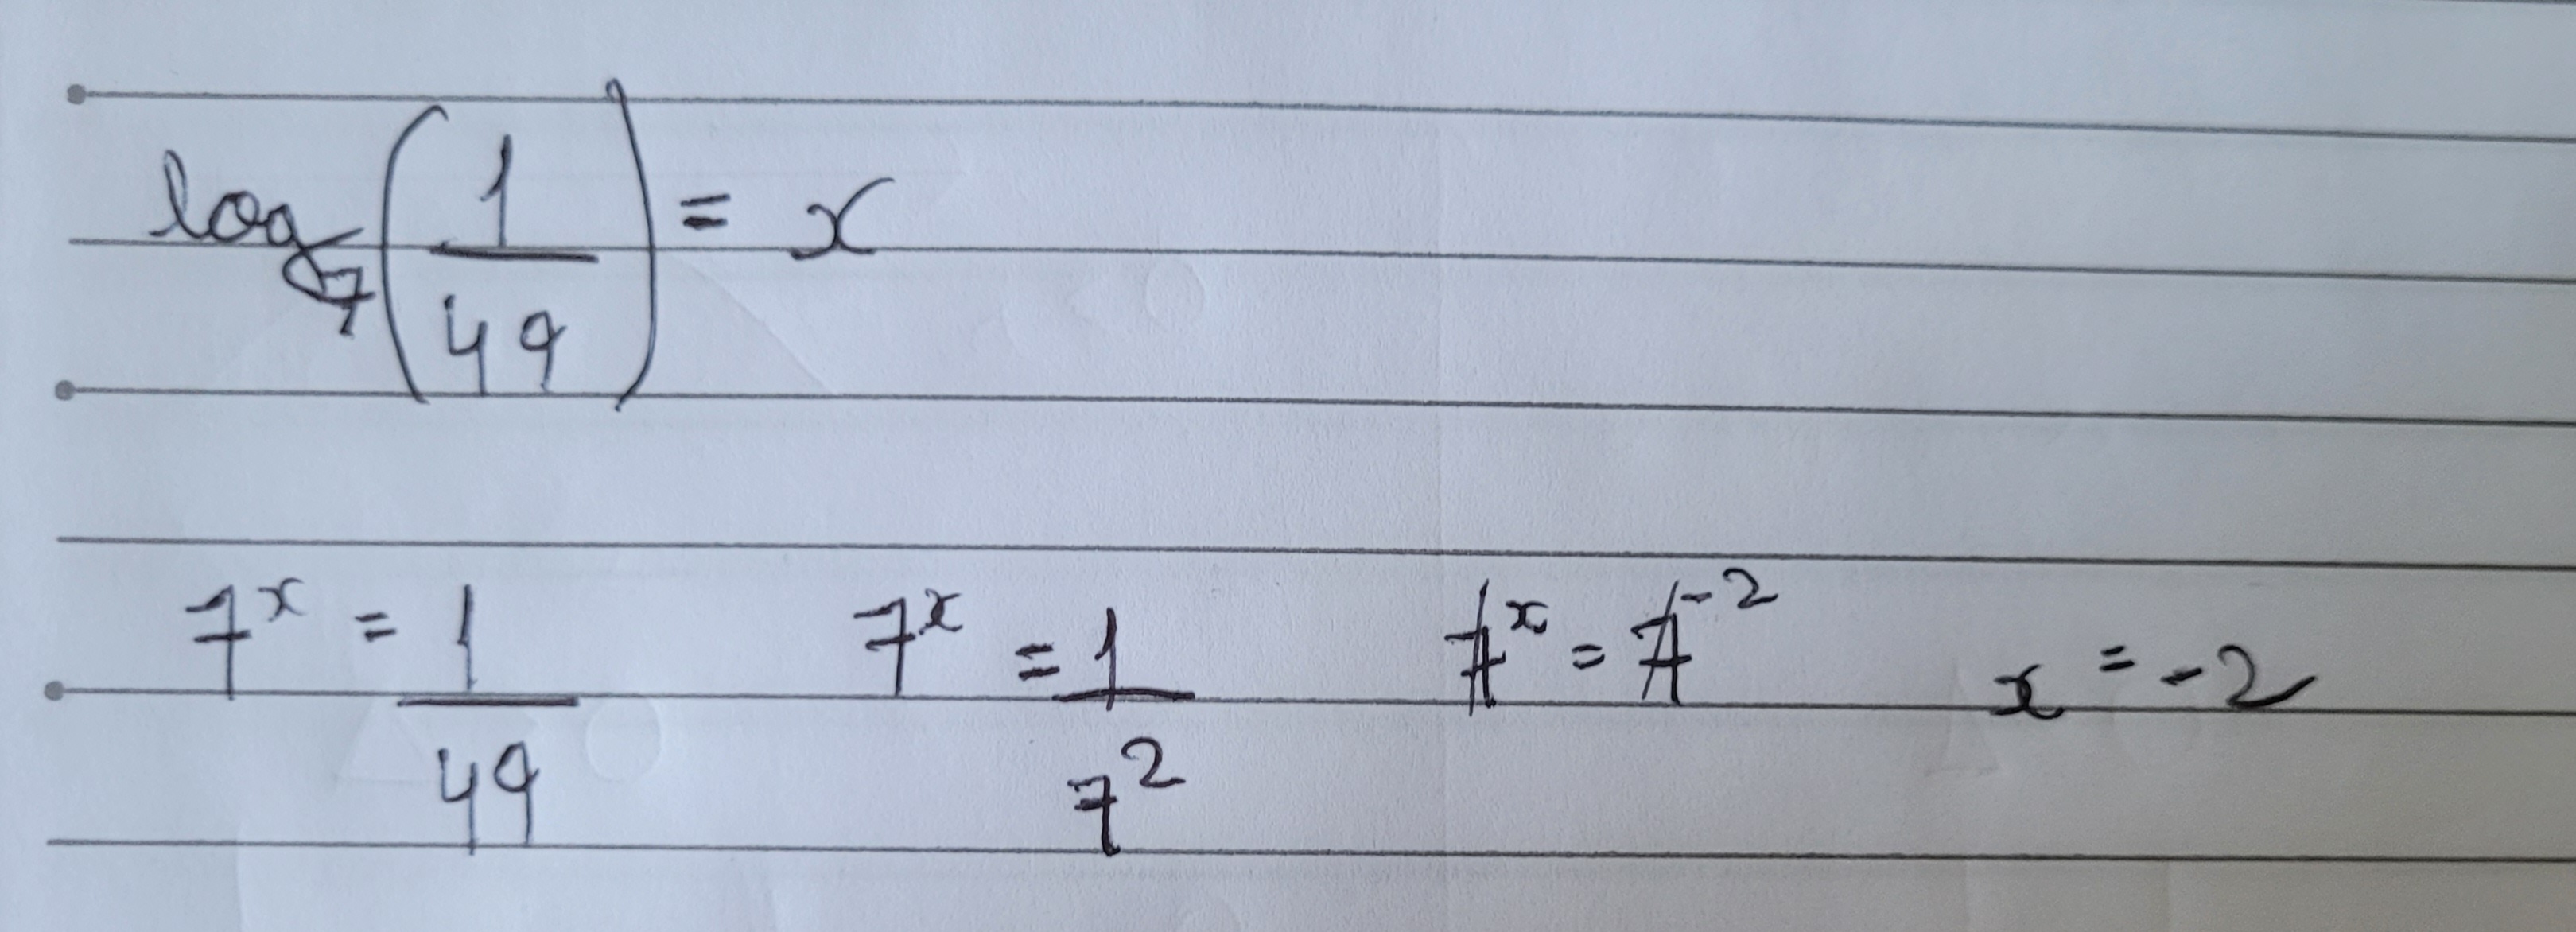 log₇(1/49) = x
7ˣ = 1/49    7ˣ = 1/7²    7ˣ = 7⁻²    x = -2